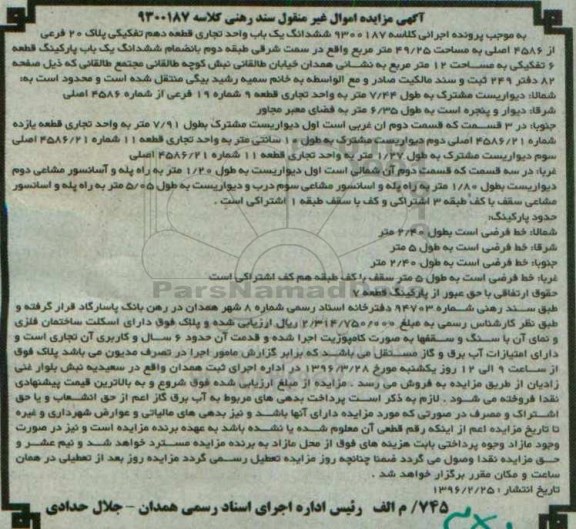 آگهی مزایده اموال غیر منقول سند رهنی کلاسه ۹۳۰۰۱۸۷
به موجب پرونده اجرائی کلاسه ۹۳۰۰۱۸۷ ششدانگ یک باب واحد تجاری قطعه دهم تفکیکی پلاک ۲۰ فرعی
از ۴۵۸۶ اصلی به مساحت ۴۹/۲۵ متر مربع واقع در سمت شرقی طبقه دوم بانضمام ششدانگ یک باب پارکینگ قطعه
۶ تفکیکی به مساحت ۱۲ متر مربع به نشانی همدان خیابان طالقانی نبش کوچه طالقانی مجتمع طالقانی که ذیل صفحه
۸۲ دفتر ۲۴۹ ثبت و سند مالکیت صادر و مع الواسطه به خانم سمیه رشید بیگی منتقل شده است و محدود است به:
شمالا: دیواریست مشترک به طول ۷/۴۴ متر به واحد تجاری قطعه ۹ شماره ۱۹ فرعی از شماره ۴۵۸۶ اصلی
شرقا: دیوار و پنجره است به طول ۶/۳۵ متر به فضای معبر مجاور
جنوبا: در ۳ قسمت که قسمت دوم آن غربی است اول دیواریست مشترک بطول ۷/۹۱ متر به واحد تجاری قطعه یازده
شماره ۴۵۸۶/۲۱ اصلی دوم دیواریست مشترک به طول ۱۰ سانتی متر به واحد تجاری قطعه ۱۱ شماره ۴۵۸۶/۲۱ اصلی
سوم دیواریست مشترک به طول ۱/۲۷ متر به واحد تجاری قطعه ۱۱ شماره ۴۵۸۶/۲۱ اصلی
غربا: در سه قسمت که قسمت دوم آن شمالی است اول دیواریست به طول ۱/۲۰ متر به راه پله و آسانسور مشاعی دوم
دیواریست بطول ۱/۸۰ متر به راه پله و اسانسور مشاعی سوم درب و دیواریست به طول ۵/۰۵ متر به راه پله و اسانسور
مشاعی سقف با کف طبقه ۳ اشتراکی و کف با سقف طبقه ۱ اشتراکی است .
حدود پارکینگ:
شمالا: خط فرضی است بطول ۲/۴۰ متر
شرقا: خط فرضی است به طول ۵ متر
جنوبا: خط فرضی است به طول ۲/۴۰ متر
غربا: خط فرضی است به طول ۵ متر سقف با کف طبقه هم کف اشتراکی است
حقوق ارتفاقی با حق عبور از پارکینگ قطعه ۷
طبق سند رهنی شماره ۹۴۷۰۳ دفترخانه اسناد رسمی شماره ۸ شهر همدان در رهن بانک پاسارگاد قرار گرفته و
طبق نظر کارشناس رسمی به مبلغ ۲/۳۱۴/۷۵۰/۰۰۰ ریال ارزیابی شده و پلاک فوق دارای اسکلت ساختمان فلزی
و نمای آن با سنگ و سقفها به صورت کامپوزیت اجرا شده و قدمت آن حدود ۶ سال و کاربری آن تجاری است و
دارای امتیازات آب برق و گاز مستقل می باشد که برابر گزارش مامور اجرا در تصرف مدیون می باشد پلاک فوق
از ساعت ۹ الی ۱۲ روز یکشنبه مورخ ۱۳۹۶/۳/۲۸ در اداره اجرای ثبت همدان واقع در سعیدیه نبش بلوار غنی
زادیان از طریق مزایده به فروش می رسد . مزایده از مبلغ ارزیابی شده فوق شروع و به بالاترین قیمت پیشنهادی
نقدا فروخته می شود . لازم به ذکر است پرداخت بدهی های مربوط به آب برق گاز اعم از حق انشعاب و یا حق
اشتراک و مصرف در صورتی که مورد مزایده دارای آنها باشد و نیز بدهی های مالیاتی و عوارض شهرداری و غیره
تا تاریخ مزایده اعم از اینکه رقم قطعی آن معلوم شده یا نشده باشد به عهده برنده مزایده است و نیز در صورت
وجود مازاد وجوه پرداختی بابت هزینه های فوق از محل مازاد به برنده مزایده مسترد خواهد شد و نیم عشر و
حق مزایده نقدا وصول می گردد ضمنا چنانچه روز مزایده تعطیل رسمی گردد مزایده روز بعد از تعطیلی در همان
ساعت و مکان مقرر برگزار خواهد شد .
تاریخ انتشار : ۱۳۹۶/۲/۲۵
۷۴۵/ م الف رئیس اداره اجرای اسناد رسمی همدان - جلال حدادی
ParsNamadData